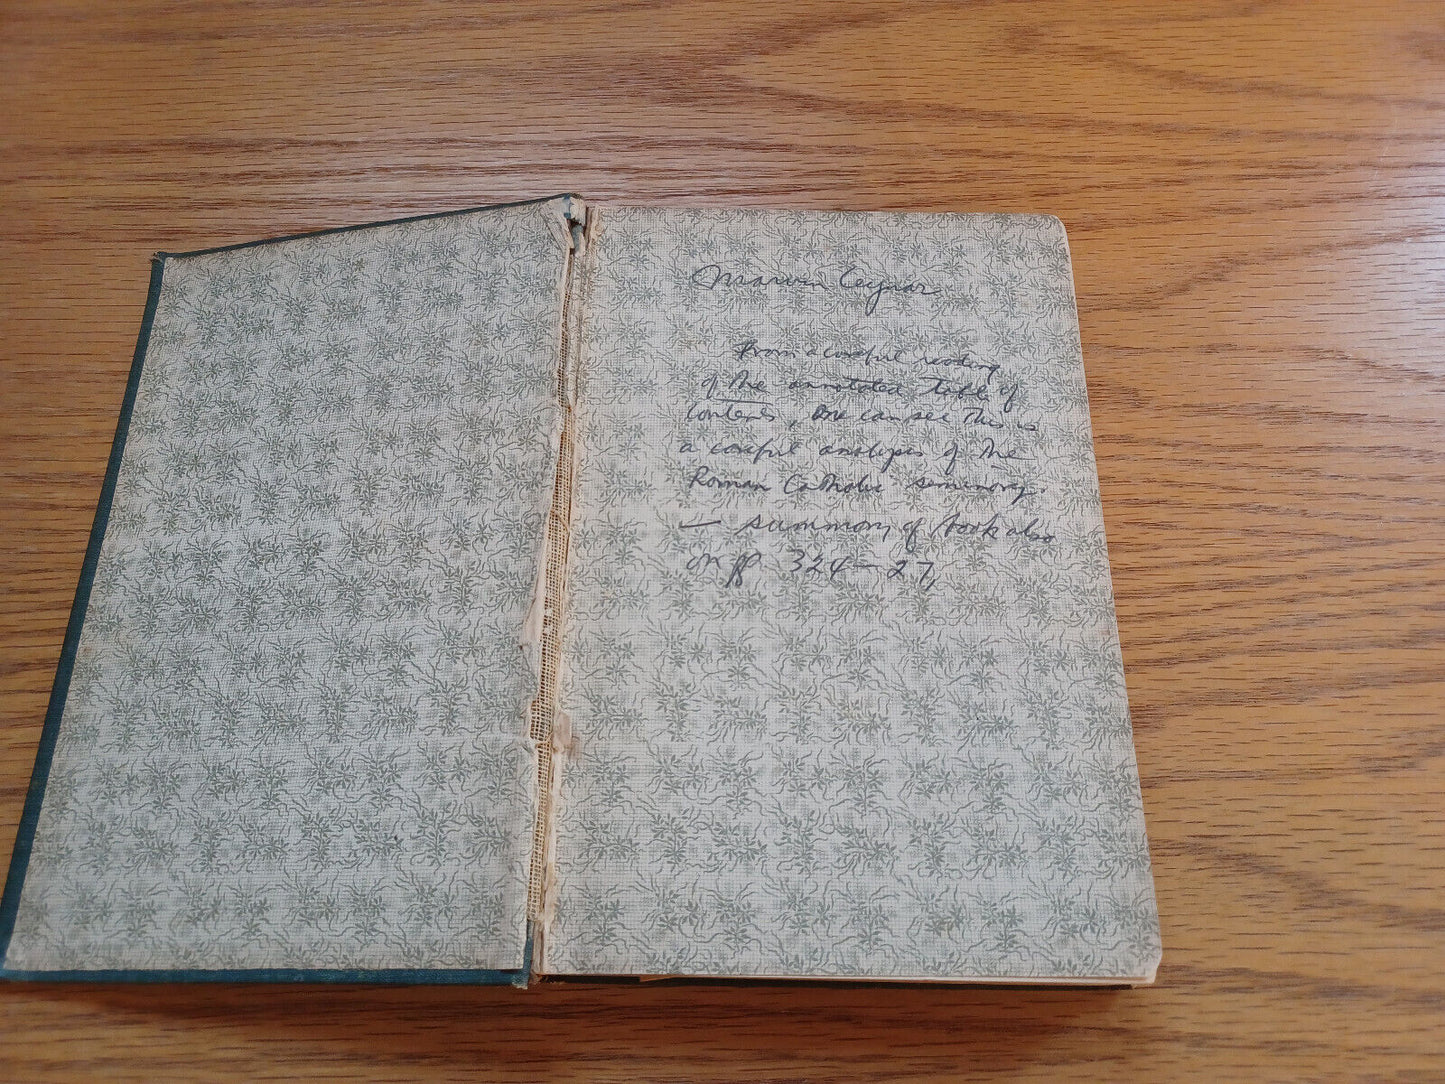 Marvin Ceynar
From a careful reading
of the annotated table of
Contents, one can see this is
a careful analysis of the
Roman Catholic seminary.
— summary of book also
on pp. 324-27,